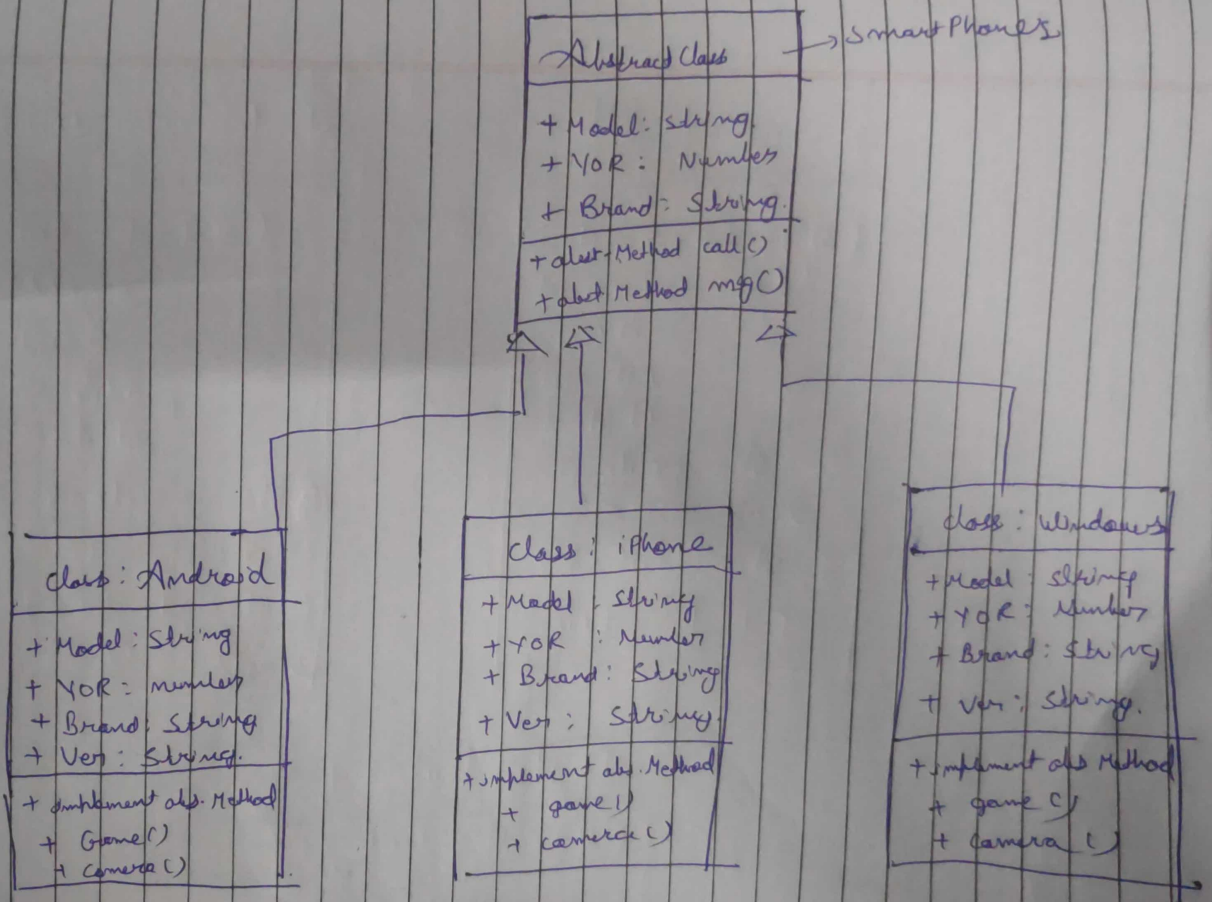 Abstract Class → SmartPhones
+ Model: String
+ YOR: Number
+ Brand: String.
+ abst-Method call()
+ abst Method msg()
class: Android
+ Model: String
+ YOR: number
+ Brand: String
+ Ver: String.
+ implement abs. Method
+ Game()
+ Camera()
class: iPhone
+ Model: String
+ YOR: Number
+ Brand: String
+ Ver: String
+ implement abs. Method
+ game()
+ camera()
class: Windows
+ Model: String
+ YOR: Number
+ Brand: String
+ Ver: String.
+ implement abs Method
+ game()
+ camera()